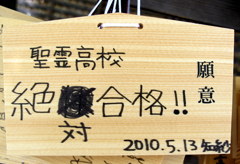 願意
聖霊高校
絶対合格!!
2010.5.13